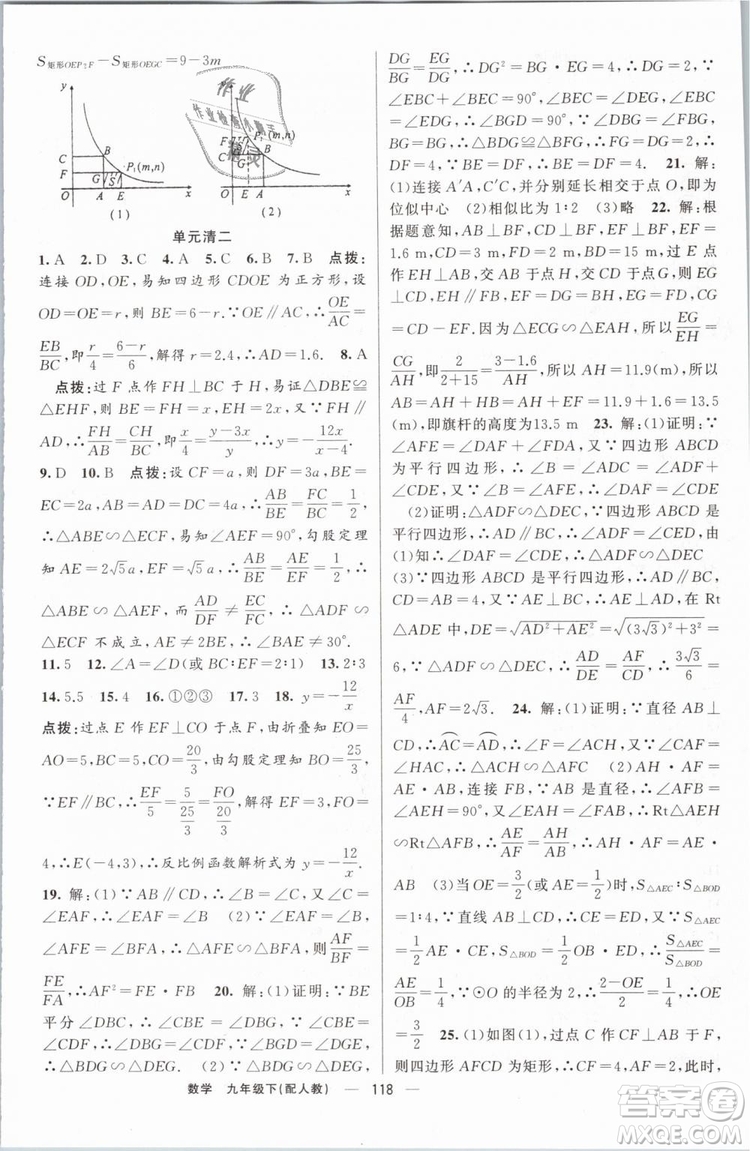 S矩形OEP₁F－S矩形OEGC＝9－3m
y
C
B
F
P₁(m,n)
G
S
O
A
E
x
(1)
y
F
P₁(m,n)
C
G
B
O
E
A
x
(2)
单元清二
1. A 2. D 3. C 4. A 5. C 6. B 7. B 点拨:
连接 OD,OE,易知四边形 CDOE 为正方形,设
OD＝OE＝r,则 BE＝6－r.∵OE∥AC,∴OE/AC＝
EB/BC,即r/4＝(6－r)/6,解得 r＝2.4,∴AD＝1.6. 8. A
点拨:过 F 点作 FH⊥BC 于 H,易证△DBE≌
△EHF,则 BE＝FH＝x,EH＝BD＝x,∵FH∥
AC,∴FH/AH＝CH/BC,即x/4＝(y－3x)/y,∴y＝－12x/(x－4).
9. D 10. B 点拨:设 CF＝a,则 DF＝3a,BE＝
EC＝2a,AB＝AD＝DC＝4a,∴AB/BE＝FC/BC＝1/2,
∴△ABE∽△ECF,易知∠AEF＝90°,勾股定理
知 AE＝2√5a,EF＝√5a,∴AB/BE＝AE/EF＝1/2,
∴△ABE∽△AEF,而AD/DF≠EC/FC,∴△ADF∽
△ECF 不成立,AE≠2BE,∴∠BAE≠30°.
11. 5 12. ∠A＝∠D(或 BC∶EF＝2∶1) 13. 2∶3
14. 5.5 15. 4 16. ①②③ 17. 3 18. y＝－12/x
点拨:过点 E 作 EF⊥CO 于点 F,由折叠知 EO＝
AO＝5,BC＝5,CO＝20/3,由勾股定理知 BO＝25/3,
∵EF∥BC,∴EF/BC＝EO/BO＝5/(25/3)＝FO/(20/3),解得 EF＝3,FO＝
4,∴E(－4,3),∴反比例函数解析式为 y＝－12/x.
19. 解:(1)∵AB∥CD,∴∠B＝∠C,又∵∠A＝
∠C,∴∠A＝∠B (2)∵∠A＝∠B,又∵
∠AFE＝∠BFA,∴△AFE∽△BFA,则AF/BF＝
FE/FA,∴AF²＝BF·FE 20. 解:(1)证明:∵BE
平分∠DBC,∴∠CBE＝∠DBG,∵∠CBE＝
∠CDF,∴∠DBG＝∠CDF,∵∠BGD＝∠DGE,
∴△BDG∽△DEG (2)∵△BDG∽△DEG,
DG/BG＝EG/DG,∴DG²＝BG·EG＝4,∴DG＝2,∵
∠EBC＋∠BEC＝90°,∠BEC＝∠DEG,∠EBC＝
∠EDG,∴∠BGD＝90°,∵∠DBG＝∠FBG,
BG＝BG,∴△BDG≌△BFG,∴FG＝DG＝2,∴
DF＝4,∵BE＝DF,∴BE＝DF＝4 21. 解:
(1)连接 A′A,C′C,并分别延长相交于点 O,即为
位似中心 (2)相似比为 1∶2 (3)略 22. 解:根
据题意知,AB⊥BD,CD⊥BD,EF⊥BD,EF＝
1.6 m,CD＝3 m,FD＝2 m,BD＝15 m,过 E 点
作 EH⊥AB,交 AB 于点 H,交 CD 于点 G,则
EG⊥CD,EH∥FB,EF＝DG＝BH,EG＝FD,CG＝
CD－EF.因为△ECG∽△EAH,所以EG/EH＝
CG/AH,即2/(2＋15)＝(3－1.6)/AH,所以 AH＝11.9(m),所以
AB＝AH＋HB＝AH＋EF＝11.9＋1.6＝13.5
(m),即旗杆的高度为13.5 m 23. 解:(1)证明:∵
∠AFE＝∠DAF＋∠ADF＝∠DAF＋∠BAE＝
∠BAD,又∵∠AFE＝∠B∵四边形 ABCD
是平行四边形,∴AD∥BC,∴∠DAF＝∠CED
(2)证明:∵四边形 ABCD 是
平行四边形,∴AD∥BC,∴∠DAF＝∠CED,由
(1)知∴∠DAF＝∠CED∴△ADF∽△DEC
(3)∵四边形 ABCD 是平行四边形,∴AD∥BC,
CD＝AB＝4,又∵AE⊥BC,∴AE⊥AD,在 Rt
△ADE 中,DE＝√(AD²＋AE²)＝√((3√3)²＋3²)＝
6,∵△ADF∽△DEC,∴AD/DE＝AF/CD,∴3√3/6＝
AF/4,AF＝2√3. 24. 解:(1)证明:∵直径 AB⊥
CD,∴AC＝AD,∴∠F＝∠ACH,又∵∠CAF＝
∠HAC,∴△ACH∽△AFC (2)AH·AF＝
AE·AB,连接 FB,∵AB 是直径,∴∠AFB＝
∠AEH＝90°,又∵∠EAH＝∠FAB,∴Rt△AEH
∽Rt△AFB,∴AE/AF＝AH/AB,∴AH·AF＝AE·
AB (3)当 OE＝3/2(或 AE＝1/2)时,S△AEC∶S△BOD
＝1∶4,∵直线 AB⊥CD,∴CE＝ED,∵S△AEC
＝1/2AE·CE,S△BOD＝1/2OB·ED,∴S△AEC/S△BOD＝
AE/OB＝1/4,∵⊙O 的半径为 2,∴(2－OE)/2＝1/4,∴OE
＝3/2 25. (1)如图(1),过点 C 作 CF⊥AB 于 F,
则四边形 AFCD 为矩形,∴CF＝4,DF＝3,此时,
数学 九年级下(配人教) — 118 —
作业
作业检查小助手
答案圈
MXQE.COM